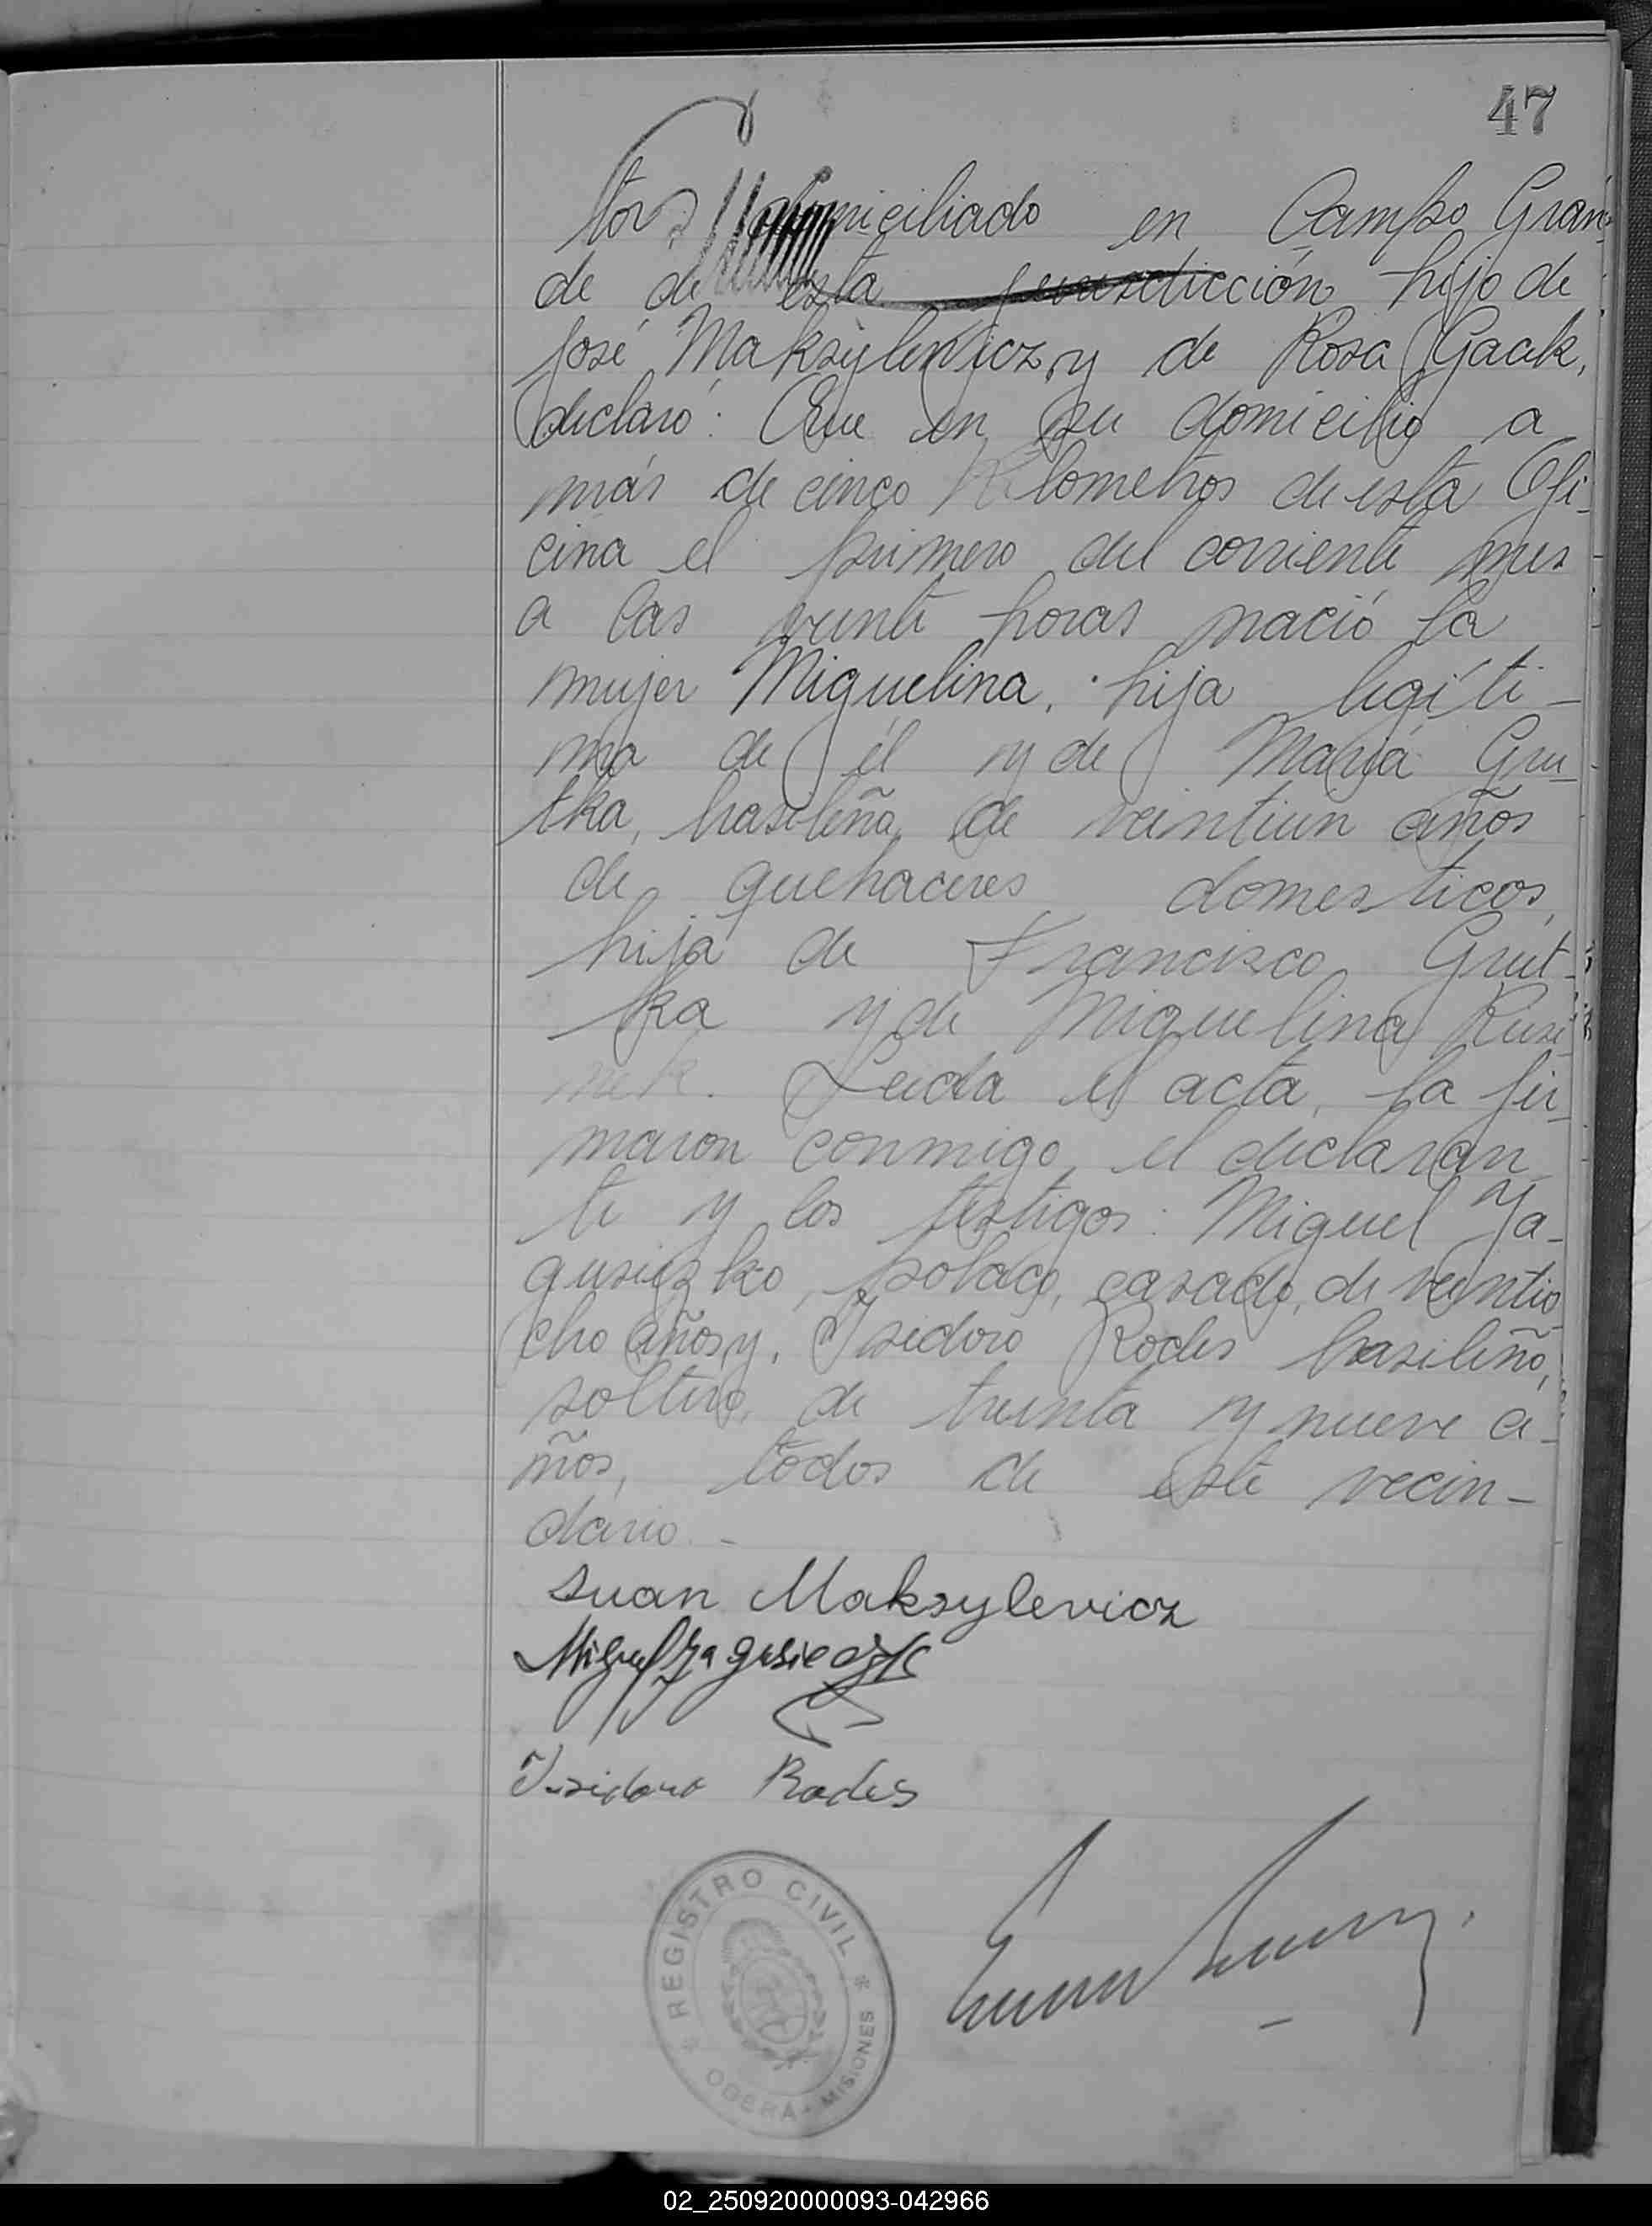 47
tor domiciliado en Campo Gran-
de de esta jurisdicción, hijo de
José Maksylewicz, y de Rosa Gacek,
declaró: Que en su domicilio a
más de cinco Kilometros de esta Ofi-
cina el primero del corriente mes
a las veinte horas nació la
mujer Miguelina, hija legíti-
ma de él y de María Gru-
tka, brasileña, de veintiun años
de quehaceres domesticos,
hija de Francisco Grut-
ka y de Miguelina Rusi-
nek. Leida el acta, la fir-
maron conmigo, el declaran-
te y los testigos: Miguel Ya-
gusieszko, polaco, casado, de veintio-
cho años, y, Ysidoro Rodes brasileño,
soltero, de treinta y nueve a-
ños, todos de este vecin-
dario.-
Juan Maksylevicz
Miguel
Ysidoro Rodes
REGISTRO CIVIL
OBERA - MISIONES
02_250920000093-042966